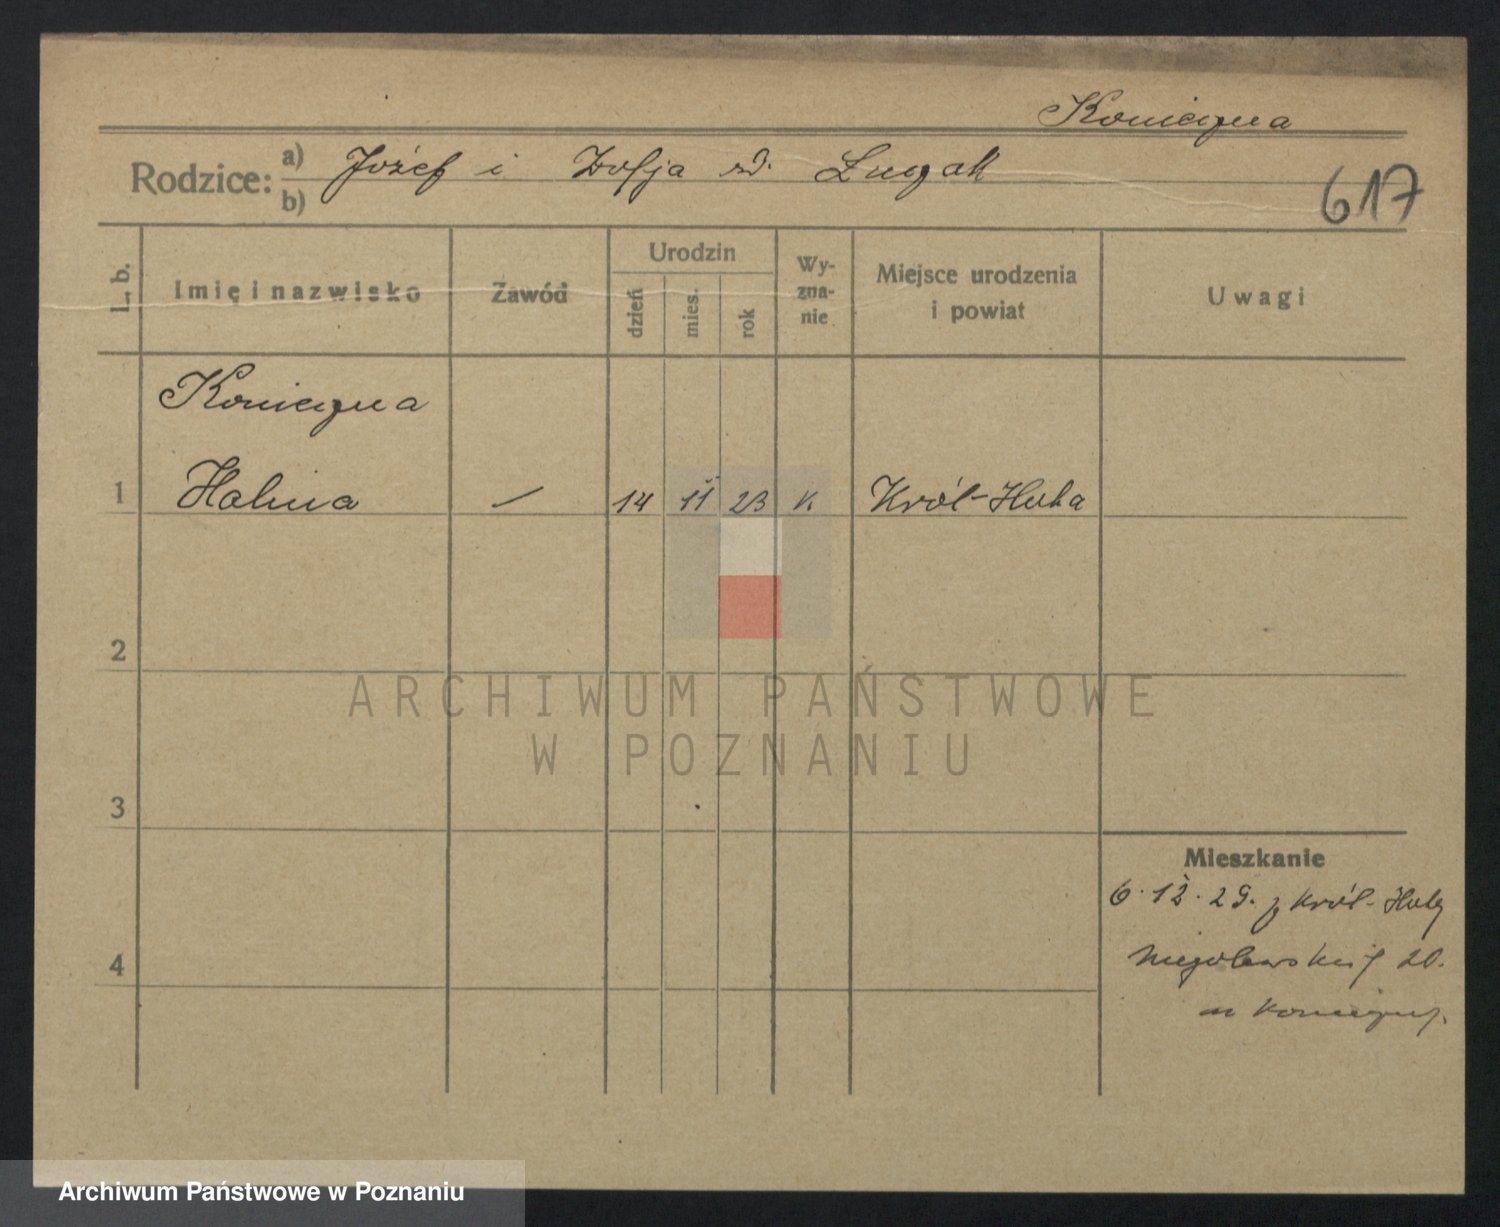 Konieczna
Rodzice: a) Józef i Zofja zd. Łuczak
b)
617
L. b.
Imię i nazwisko
Zawód
Urodzin
dzień
mies.
rok
Wy-
zna-
nie
Miejsce urodzenia
i powiat
Uwagi
Konieczna
1 Halina — 14 11 23 k. Król-Huta
2
3
4
Mieszkanie
6. 12. 29. z Król-Huty
Niegolewskich 20.
u Koniecznej.
ARCHIWUM PAŃSTWOWE
W POZNANIU
Archiwum Państwowe w Poznaniu